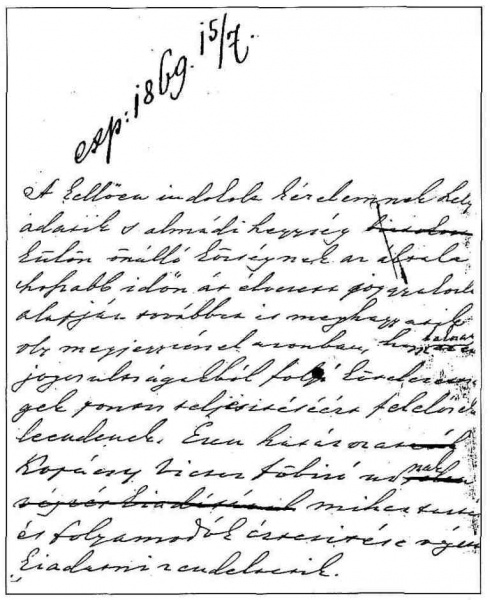 exp: 1869. 15/7.
A kellően indokolt kérelemnek hely
adatik s almádi hegység
külön önálló községnek az általa
hosszabb időn át élvezett jog gyakorlat
alapján továbbra is meghagyatik
oly megjegyzéssel azonban, hogy
jogosultságukból folyó kötelezett
gek pontos teljesítéséért felelősek
leendenek. Ezen határozat
Kopácsy Viczor főbiró urnak
végzés kiadásával mihez tartás
és folyamodók értesitése végett
kiadatni rendeltetik.